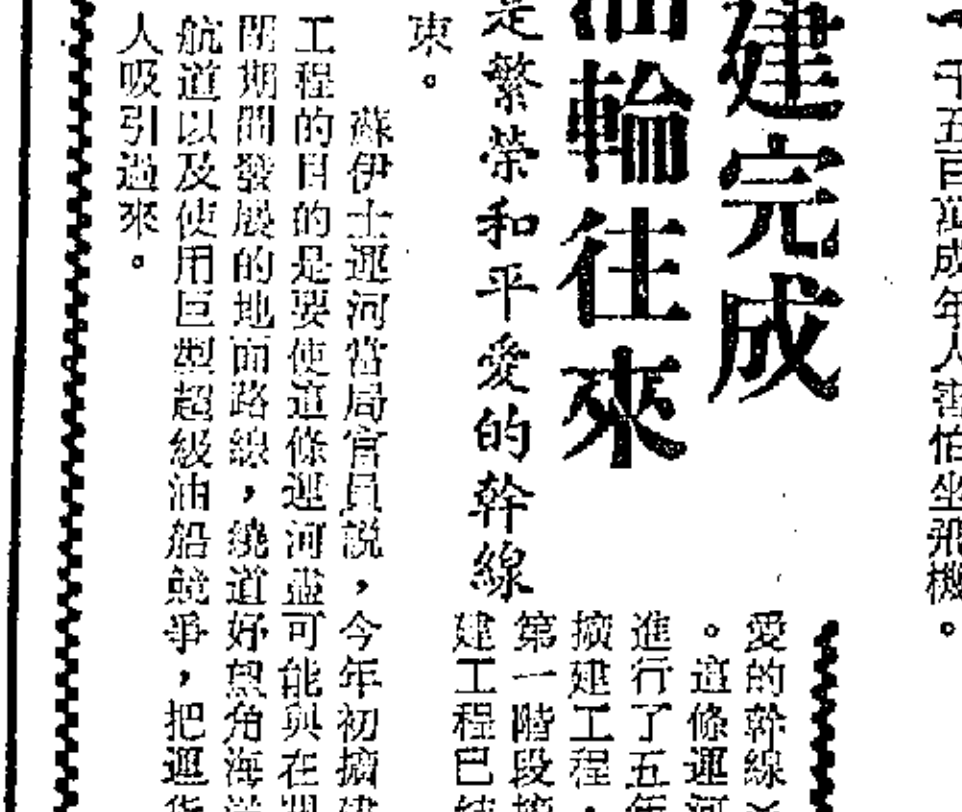 千五百萬成年人害怕坐飛機。
建完成
油輪往來
是繁榮和平愛的幹線
愛的幹線
。這條運河
進行了五年
擴建工程，
第一階段擴
建工程已結
東。
蘇伊士運河當局官員說，今年初擴建
工程的目的是要使這條運河盡可能與在關
閉期間發展的地面路線，繞道好望角海洋
航道以及使用巨型超級油船競爭，把運貨
人吸引過來。